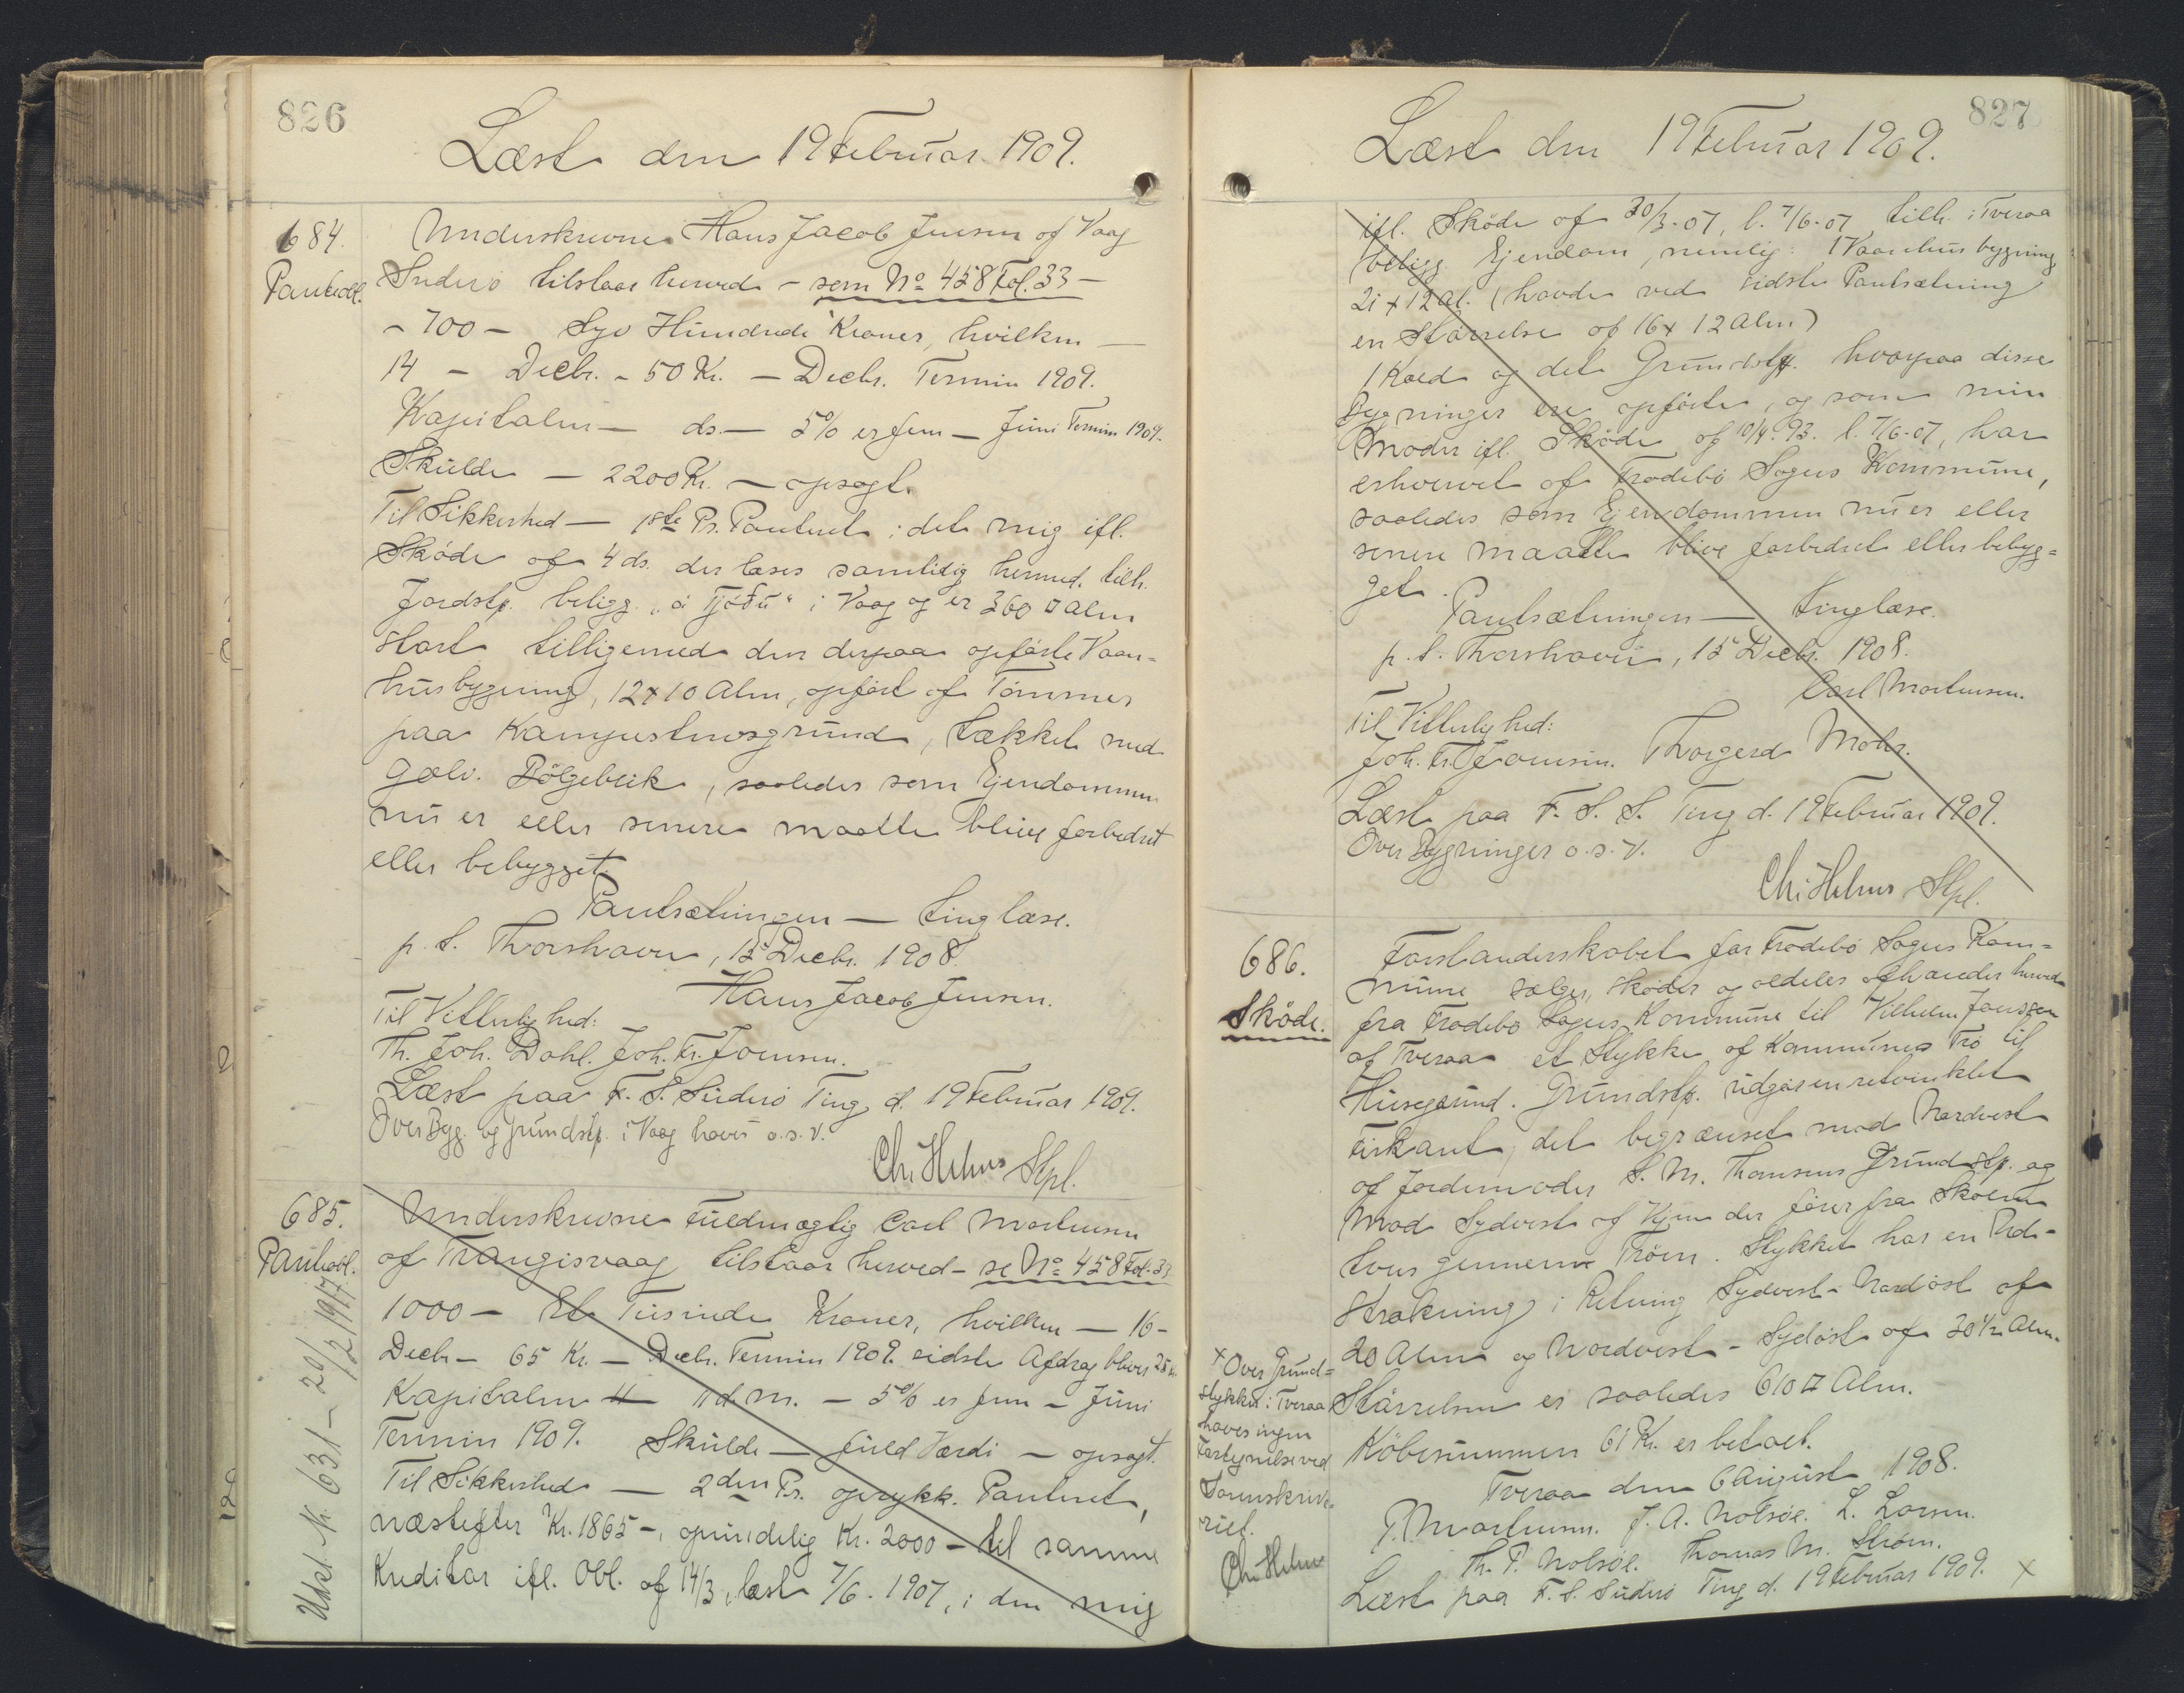 826
Læst den 19 Februar 1909.
684.
Panteobl.
Underskrevne Hans Jacob Jensen af Vaag
Suderö tilstaar herved – som No 458 Fol. 33 –
– 700 – Syv Hundrede Kroner, hvilken –
14 – Decbr. – 50 Kr. – Decbr. Termin 1909.
Kapitalen – ds. – 5% er fem – Juni Termin 1909.
Skulde – 2200 Kr. – opsagt.
Til Sikkerhed – 1ste Pr. Panteret i det mig ifl.
Sköde af 4 ds. der læses samtidig hermed tilh.
Jordstp. beligg. "á Tjóðu" i Vaag og er 360 □ Alen
stort tilligemed den derpaa opförte Vaan-
husbygning, 12 x 10 Alen, opfört af Tömmer
paa Kampestensgrund, tækket med
galv. Bölgeblik, saaledes som Ejendommen
nu er eller senere maatte blive forbedret
eller bebygget.
Pantsætningen – tinglæse.
p. t. Thorshavn, 15 Decbr. 1908.
Hans Jacob Jensen.
Til Vitterlighed:
Th. Joh. Dahl. Joh. Fr. Joensen.
Læst paa F. S. Suderö Ting d. 19 Februar 1909.
Over Byg. og Grundstp. i Vaag haves o.s.v.
Chr. Helms Stpl.
685.
Panteobl.
Udsl. Nr. 631 – 20/2 1917
Underskrevne Fuldmægtig Carl Mortensen
af Trangisvaag tilstaar herved – se No 458 Fol. 33
1000 – Et Tusinde Kroner, hvilken – 16 –
Decbr – 65 Kr. – Decbr. Termin 1909. sidste Afdrag bliver 25 Kr.
Kapitalen – 11 d. M. – 5% er fem – Juni
Termin 1909. Skulde – fuld Værdi – opsagt.
Til Sikkerhed – 2den Pr. oprykk. Panteret,
næstefter Kr. 1865 –, oprindelig Kr. 2000 – til samme
Kreditor ifl. Obl. af 14/3, læst 7/6. 1907, i den mig
827
Læst den 19 Februar 1909.
ifl. Sköde af 30/3-07, l. 7/6-07 tilh. i Tveraa
beligg. Ejendom, nemlig: 1 Vaanhusbygning
21 x 12 Al. (havde ved sidste Pantsætning
en Störrelse af 16 x 12 Alen)
1 Kæld og det Grundstp. hvorpaa disse
Bygninger ere opförte, og som min
Moder ifl. Sköde af 10/4. 93. l. 7/6-07, har
erhvervet af Frodebö Sogns Kommune,
saaledes som Ejendommen nu er eller
senere maatte blive forbedret eller bebyg=
get.
Pantsætningen – tinglæse.
p. t. Thorshavn, 15 Decbr. 1908.
Carl Mortensen.
Til Vitterlighed:
Joh. Fr. Joensen. Thorgerd Mohr.
Læst paa F. S. S. Ting d. 19 Februar 1909.
Over Bygninger o.s.v.
Chr. Helms Stpl.
686.
Sköde.
Forstanderskabet for Frodebö Sogns Kom=
mune sælger, sköder og aldeles afhænder herved
fra Frodebö Sogns Kommune til Vilhelm Joensen
af Tveraa et Stykke af Kommunens Trö til
Husegrund. Grundstp. udgör en retvinklet
Firkant, det begrænset mod Nordvest
af Jordemoder S. M. Thomsens Grundstp. og
mod Sydvest af Vejen der förer fra Skolen
tvers gennem Tröen. Stykket har en Ud-
strækning i Retning Sydvest-Nordöst af
20 Alen og Nordvest-Sydöst af 30½ Alen.
Störrelsen er saaledes 610 □ Alen.
Köbesummen 61 Kr. er betalt.
Tveraa den 6 August 1908.
P. Mortensen. J. A. Nolsöe. L. Larsen.
Th. P. Nolsöe. Thomas M. Ström.
Læst paa F. S. Suderö Ting d. 19 Februar 1909. x
x Over Grund=
stykket i Tveraa
haves ingen
Fastegnelse ved
Sorenskrive-
riet.
Chr. Helms